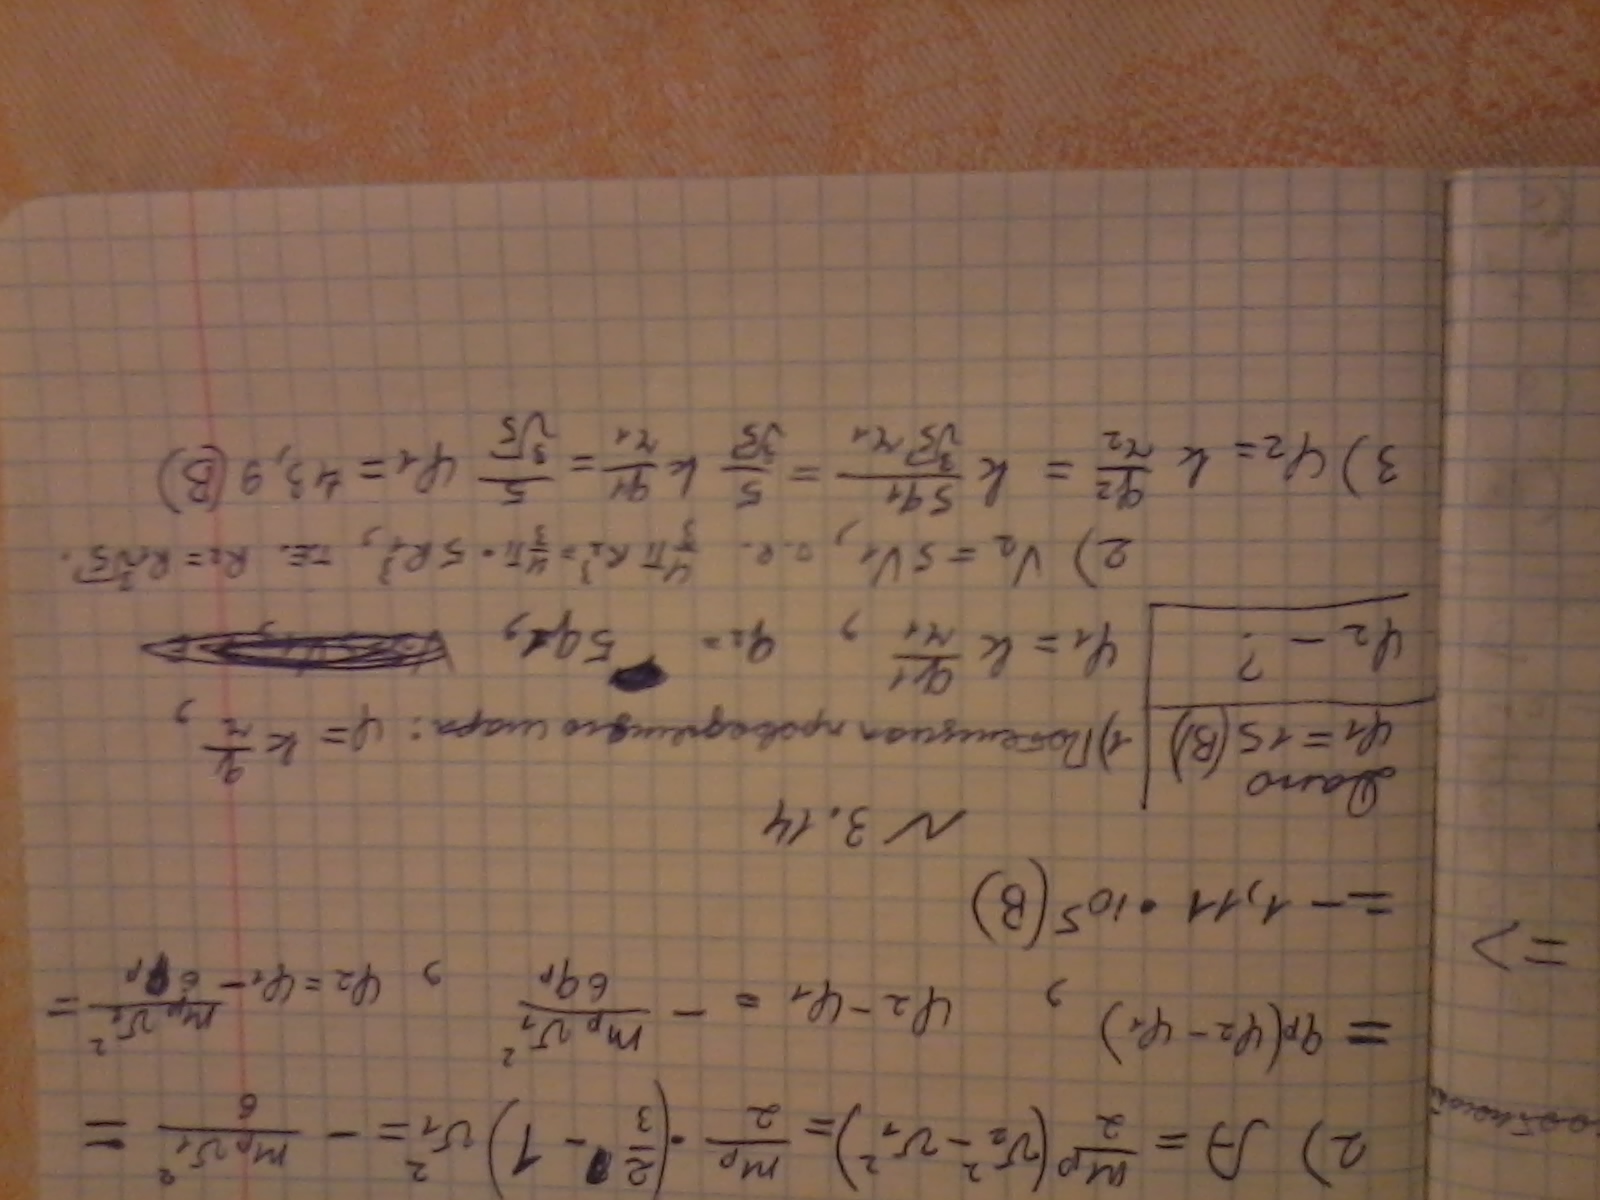 2) A = mp/2 (v₂² - v₁²) = mp/2 · (2/3 - 1) v₁² = - mp v₁²/6 =
= qp(φ2 - φ1), φ2 - φ1 = - mp v₁²/6qp, φ2 = φ1 - mp v₁²/6qp =
=>
= - 1,11 · 10⁵ (В)
N 3.14
Дано
φ1 = 15 (В)
1) Потенциал проводящего шара: φ = k q/r,
φ2 - ?
φ1 = k q1/r1, q2 = 5q1,
2) V2 = 5V1, т.е. 4/3 π R₂³ = 4/3 π · 5R₁³, т.е. R2 = R1∛5.
3) φ2 = k q2/r2 = k 5q1/∛5 r1 = 5/∛5 k q1/r1 = 5/∛5 φ1 = 43,9 (В)